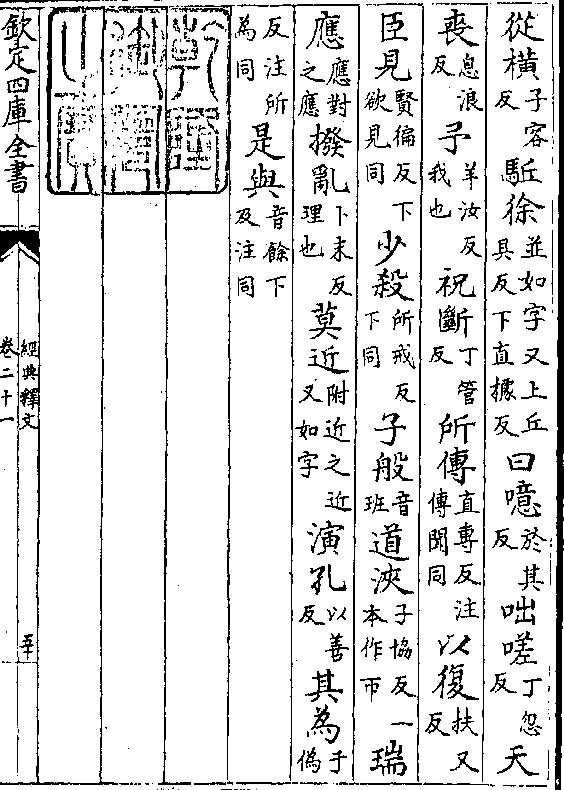 從橫子容反駈徐並如字又上丘具反下直據反曰噫於其反咄嗟丁忽反天
喪息浪反予羊汝反我也祝斷丁管反所傳直專反注傳聞同以復扶又反
臣見賢徧反下欲見同少殺所戒反下同子般音班道浹子協反一本作帀瑞
應應對之應撥亂卜末反理也莫近附近之近又如字演孔以善反其為于偽
反注所為同是與音餘下及注同
欽定四庫全書
經典釋文
卷二十一